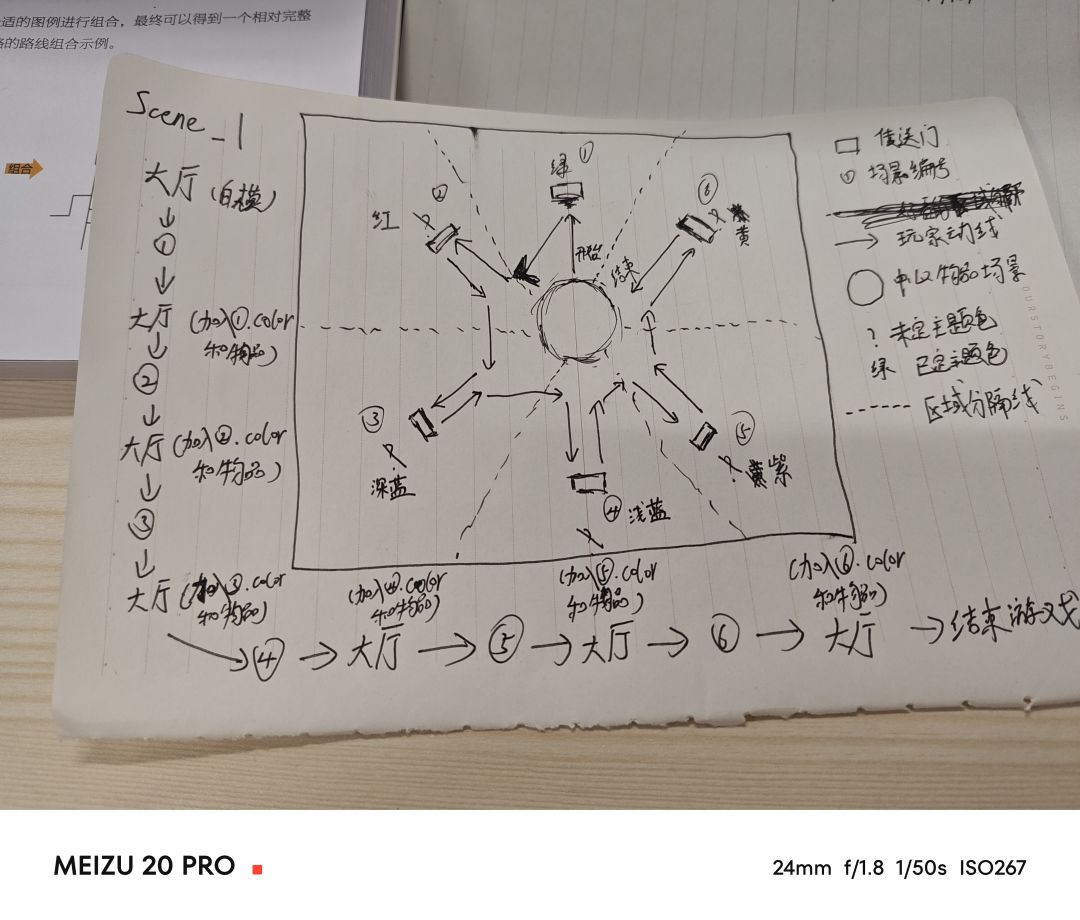 适的图例进行组合，最终可以得到一个相对完整
的路线组合示例。
组合
Scene_1
大厅 (白模)
↓
①
↓
大厅 (加入①.color
和物品)
↓
②
↓
大厅 (加入②.color
和物品)
↓
③
↓
大厅 (加入③.color
和物品)
④ → 大厅 → ⑤ → 大厅 → ⑥ → 大厅 → 结束游戏
(加入④.color
和物品)
(加入⑤.color
和物品)
(加入⑥.color
和物品)
绿 ①
红 ②
③
深蓝
④ 浅蓝
⑤
紫
⑥
黄
开始
结束
传送门
① 场景编号
→ 玩家动线
中心物品场景
? 未定主题色
绿 已定主题色
区域分隔线
OURSTORYBEGINS
MEIZU 20 PRO
24mm f/1.8 1/50s ISO267